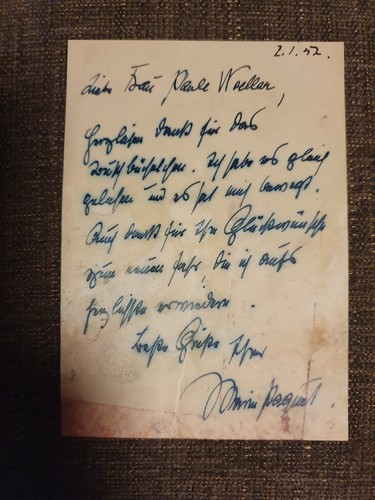 2.1.52.
Liebe Frau Paula Woeller,
herzlichen Dank für das
Ich habe es gleich
gelesen und es hat mich bewegt.
Auch Dank für Ihre Glückwünsche
zum neuen Jahr, die ich aufs
herzlichste erwidere.
Beste Grüße Ihrer
Paquet.